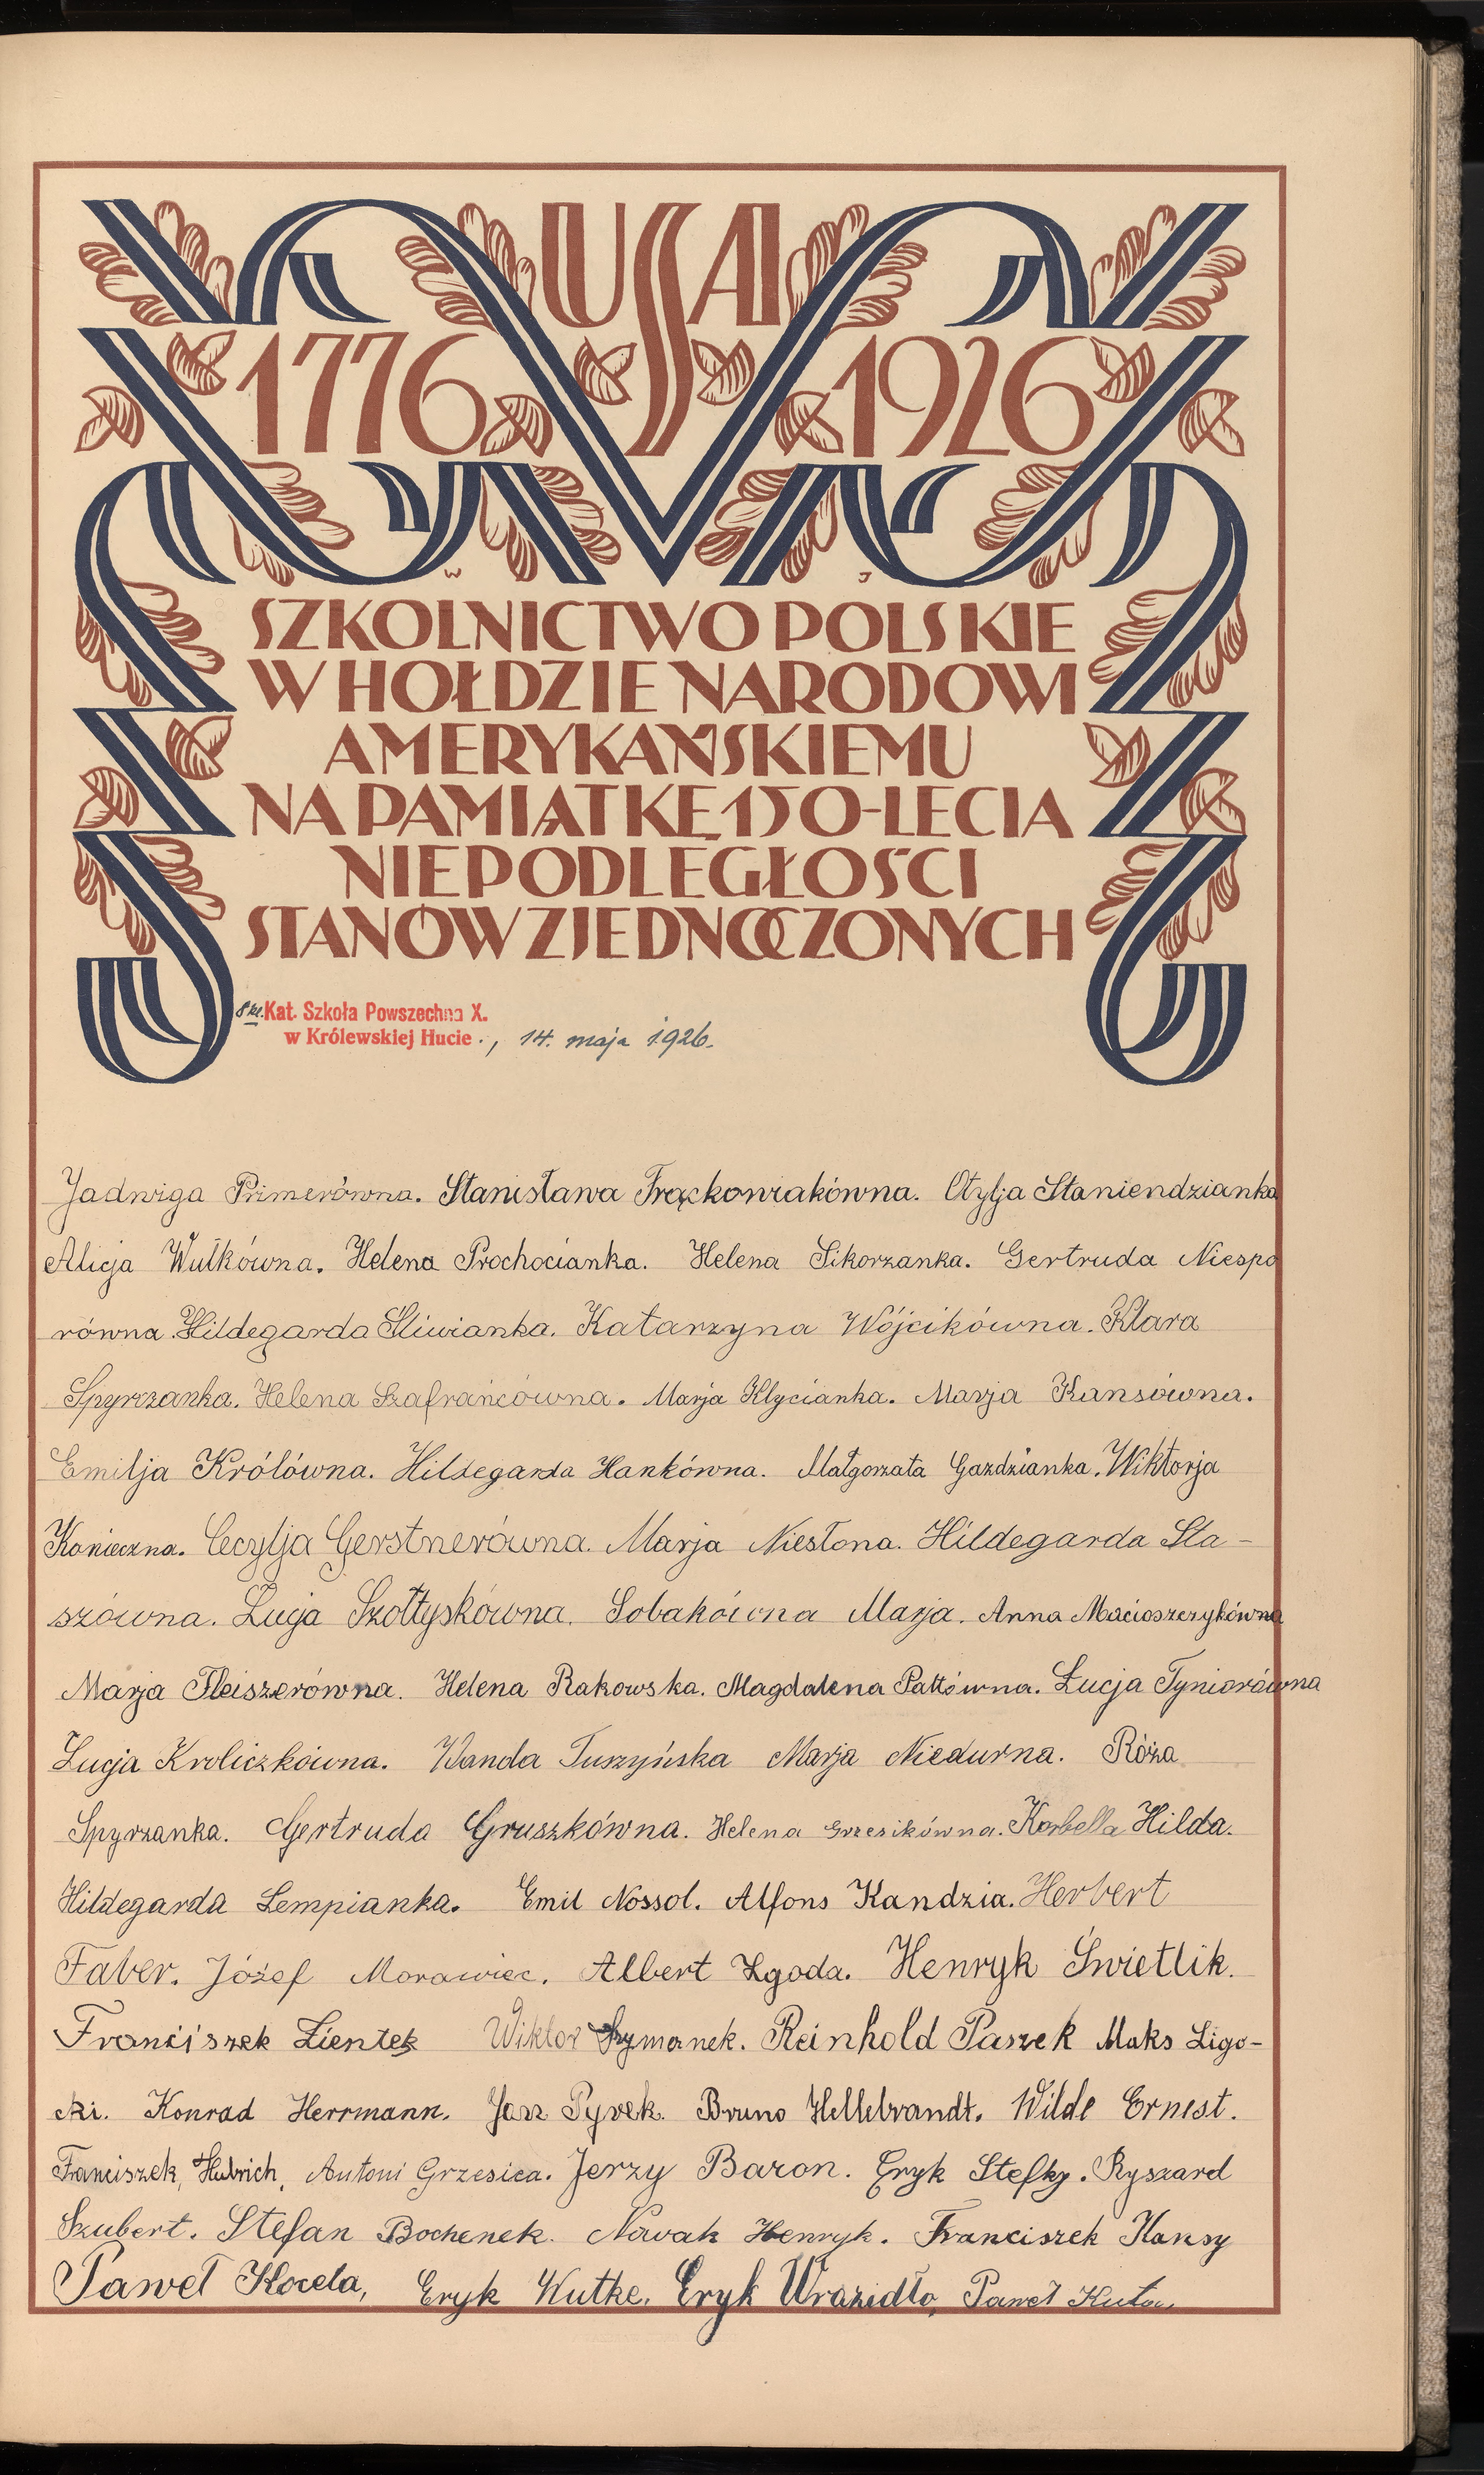 USA
1776 1926
W J
SZKOLNICTWO POLSKIE
W HOŁDZIE NARODOWI
AMERYKAŃSKIEMU
NA PAMIĄTKĘ 150-LECIA
NIEPODLEGŁOŚCI
STANÓW ZJEDNOCZONYCH
8 kl. Kat. Szkoła Powszechna X.
w Królewskiej Hucie., 14. maja 1926.
Jadwiga Primerówna. Stanisława Frąckowiakówna. Otylja Staniendzianka
Alicja Wulkówna. Helena Prochocianka. Helena Sikorzanka. Gertruda Niespo
równa. Hildegarda Śliwianka. Katarzyna Wójcikówna. Klara
Spyrzanka. Helena Szafrańcówna. Marja Klycianka. Marja Kansówna.
Emilja Królówna. Hildegarda Hankówna. Małgorzata Gazdzianka. Wiktorja
Konieczna. Cecylja Gerstnerówna. Marja Niesłona. Hildegarda Sta-
szówna. Łucja Szołtyskówna. Sobakówna Marja. Anna Macioszczykówna
Marja Fleiszerówna. Helena Rakowska. Magdalena Pattówna. Łucja Tyniorówna
Łucja Kroliczkówna. Wanda Tuszyńska Marja Niedurna. Róża
Spyrzanka. Gertruda Gruszkówna. Helena Grzesikówna. Korbella Hilda.
Hildegarda Lempianka. Emil Nossol. Alfons Kandzia. Herbert
Faber. Józef Morawiec. Albert Zgoda. Henryk Świetlik.
Franciszek Zientek Wiktor Szymanek. Reinhold Paszek Maks Ligo-
cki. Konrad Herrmann. Jan Pyrek. Bruno Hellebrandt. Wilde Ernest.
Franciszek, Hubrich, Antoni Grzesica. Jerzy Baron. Eryk Stefky. Ryszard
Szubert. Stefan Bochenek. Nowak Henryk. Franciszek Hansy
Paweł Kocela, Eryk Kutke. Eryk Wrazidło, Paweł Kuta.